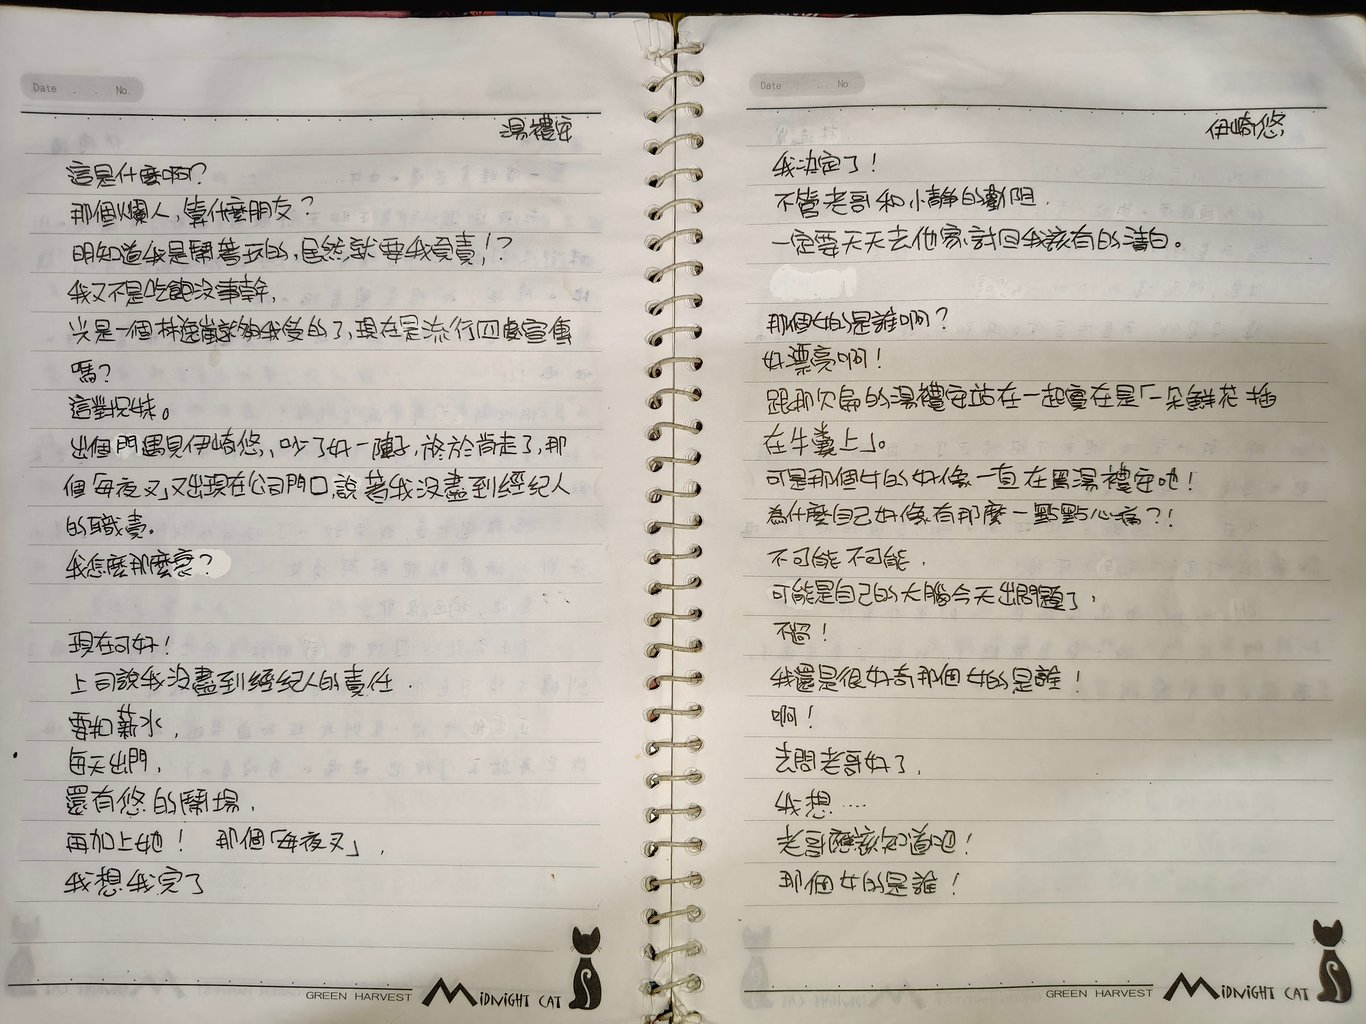 Date . . No.
湯禮宏
這是什麼啊?
那個爛人,算什麼朋友?
明知道我是鬧著玩的,居然就要我負責!?
我又不是吃飽沒事幹,
光是一個林逸嵐就夠我受的了,現在是流行四處宣傳
嗎?
這對兄妹。
出個門遇見伊崎悠,吵了好一陣子,終於肯走了,那
個「母夜叉」又出現在公司門口,說著我沒盡到經紀人
的職責。
我怎麼那麼衰?
現在可好!
上司說我沒盡到經紀人的責任.
要扣薪水,
每天出門,
還有悠的鬧場,
再加上她! 那個「母夜叉」,
我想我完了
GREEN HARVEST MIDNIGHT CAT
Date . . No.
伊崎悠
我決定了!
不管老哥和小靜的勸阻,
一定要天天去他家討回我該有的清白。
那個女的是誰啊?
好漂亮啊!
跟那欠扁的湯禮宏站在一起實在是「一朵鮮花插
在牛糞上」。
可是那個女的好像一直在罵湯禮宏吔!
為什麼自己好像有那麼一點點心痛?!
不可能不可能,
可能是自己的大腦今天出問題了,
不過!
我還是很好奇那個女的是誰!
啊!
去問老哥好了,
我想....
老哥應該知道吧!
那個女的是誰!
GREEN HARVEST MIDNIGHT CAT